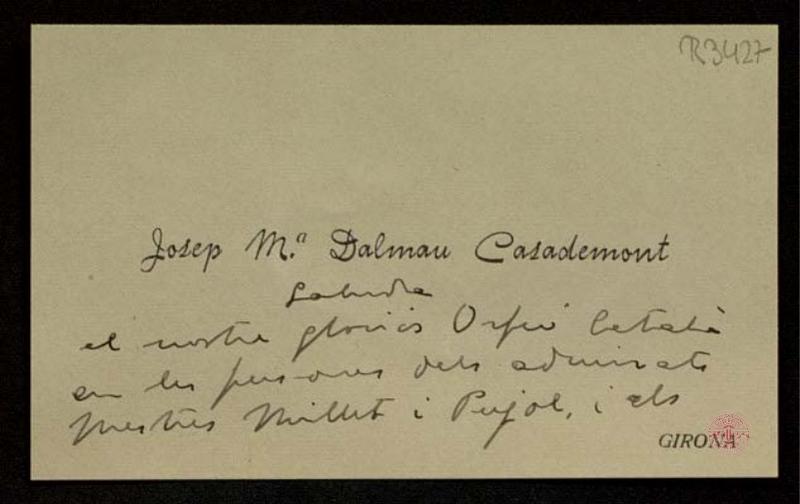 R3427
Josep M.ª Dalmau Casademont
Saluda
el nostre gloriós Orfeó Català
en les persones dels admirats
mestres Millet i Pujol, i als
GIRONA